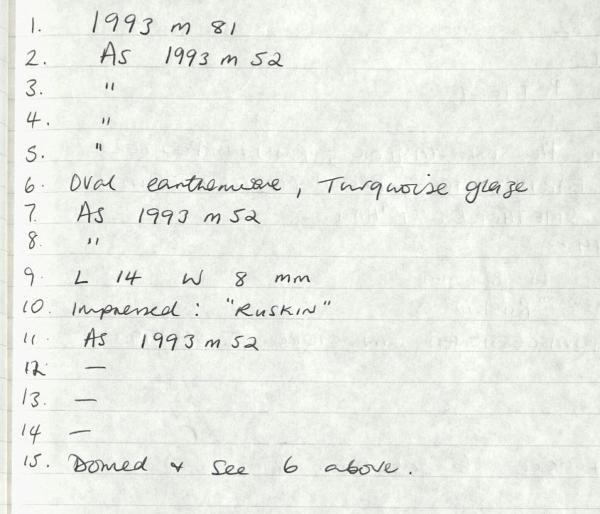 1. 1993 m 81
2. As 1993 m 52
3. "
4. "
5. "
6. Oval earthenware, Turquoise glaze
7. As 1993 m 52
8. "
9. L 14 W 8 mm
10. Impressed : "RUSKIN"
11. As 1993 m 52
12. —
13. —
14 —
15. Domed & See 6 above.